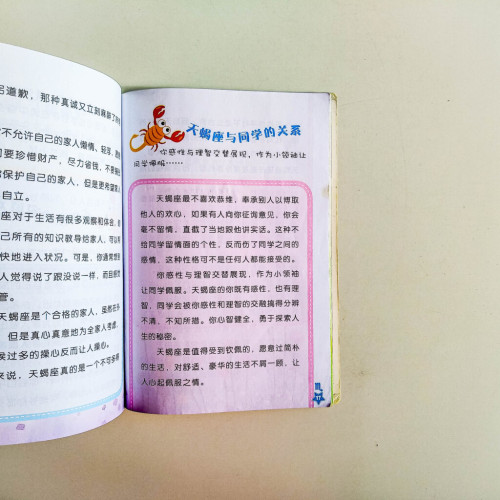 道歉，那种真诚又立到
不允许自己的家人懒惰、
要珍惜财产，尽力省钱，不要
保护自己的家人，但是更希望
自立。
座对于生活有很多观察和体会，
己所有的知识教导给家人，可以
快地进入状况。可是，你通常
人觉得说了跟没说一样，而且
管。
天蝎座是个合格的家人，虽然在
但是真心真意地为全家人考虑。
过多的操心反而让人操心。
来说，天蝎座真的是一个不可多得
天蝎座与同学的关系
你感性与理智交替展现，作为小领袖让
同学佩服……
天蝎座最不喜欢恭维，奉承别人以博取
他人的欢心，如果有人向你征询意见，你会
毫不留情，直截了当地跟他讲实话。这种不
给同学留情面的个性，反而伤了同学之间的
感情，这种性格可不是任何人都能接受的。
你感性与理智交替展现，作为小领袖
让同学佩服。天蝎座的你既有感性，也有理
智，同学会被你感性和理智的交融搞得分辨
不清，不知所措。你心智健全，勇于探索人
生的秘密。
天蝎座是值得受到钦佩的，愿意过简朴
的生活，对舒适、豪华的生活不屑一顾，让
人心起佩服之情。